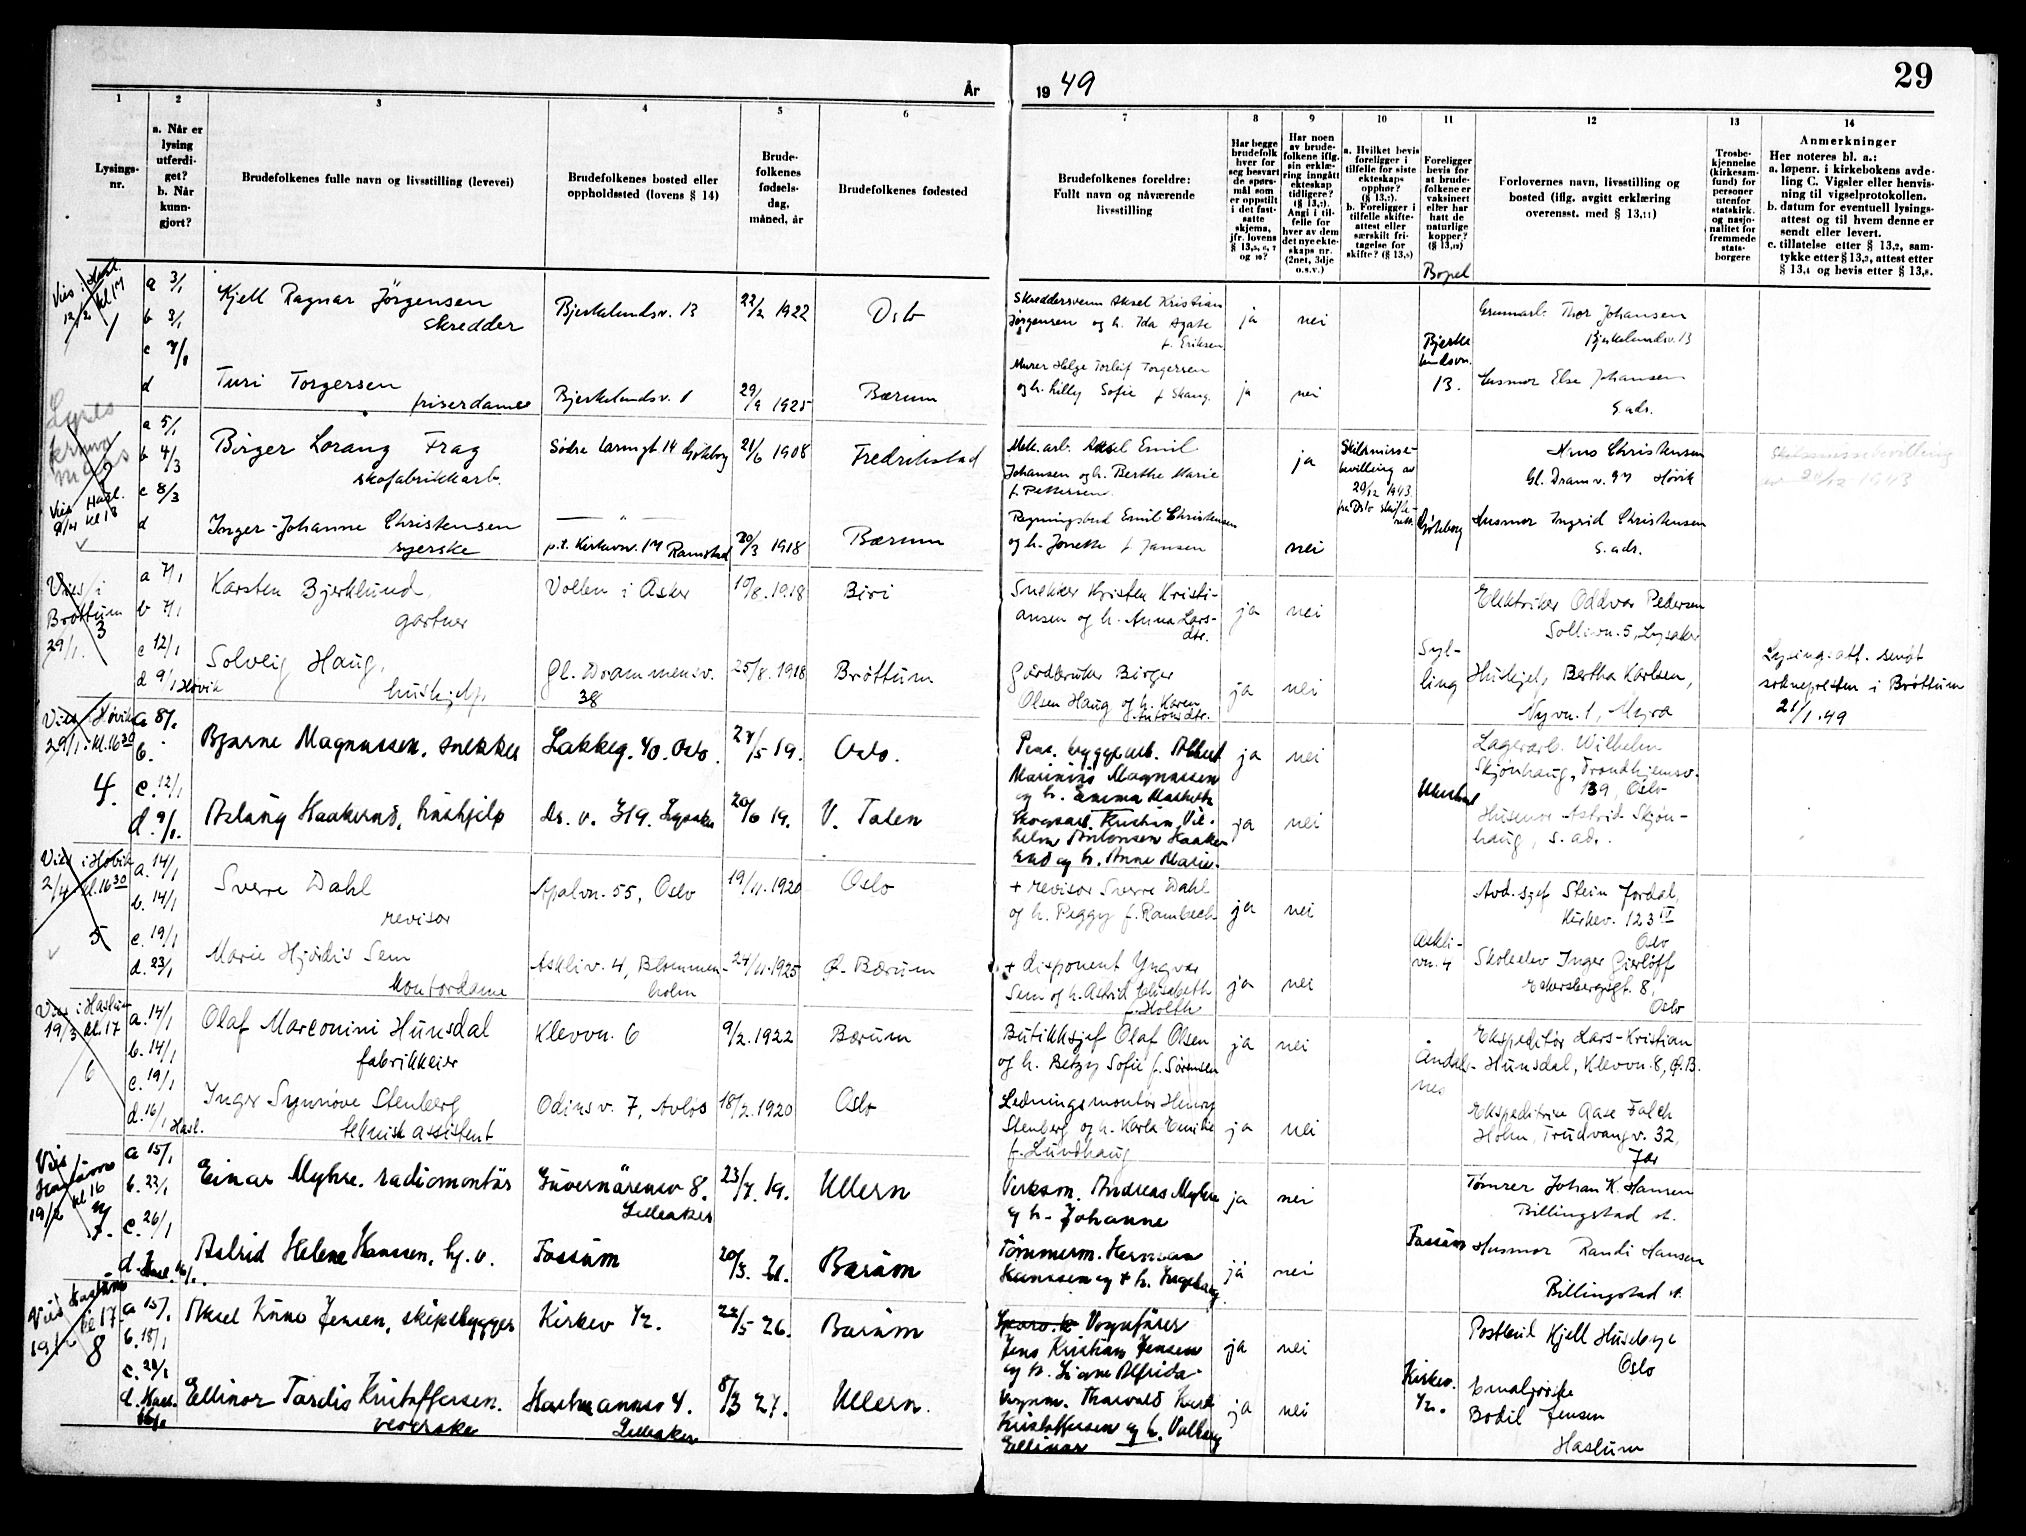 År
1949
29
1
2
3
4
5
6
7
8
9
10
11
12
13
14
Lysings-
nr.
a. Når er
lysing
utferdi-
get?
b. Når
kunn-
gjort?
Brudefolkenes fulle navn og livsstilling (levevei)
Brudefolkenes bosted eller
oppholdssted (lovens § 14)
Brude-
folkenes
fødsels-
dag,
måned, år
Brudefolkenes fødested
Brudefolkenes foreldre:
Fullt navn og nåværende
livsstilling
Har begge
brudefolk
hver for
seg besvart
de spørs-
mål som
er oppstilt
i det fast-
satte
skjema,
jfr. lovens
og 10?
Har noen
av brude-
folkene iflg.
sin erklæ-
ring inngått
ekteskap
tidligere?
Angi i til-
felle for
hver av dem
det nye ekte-
skaps nr.
(2net, 3dje
o.s.v.)
a. Hvilket bevis
foreligger i
tilfelle for siste
ekteskaps
opphør?
b. Foreligger i
tilfelle skifte-
attest eller
særskilt fri-
tagelse for
Foreligger
bevis for
at brude-
folkene er
vaksinert
eller har
hatt de
naturlige
kopper?
Bopel
Forlovernes navn, livsstilling og
bosted (iflg. avgitt erklæring
overensst. med § 13,11)
Trosbe-
kjennelse
(kirkesam-
fund) for
personer
utenfor
statskirk.
og nasjo-
nalitet for
fremmede
stats-
borgere
Anmerkninger
Her noteres bl. a.:
a. løpenr. i kirkebokens avde-
ling C. Vigsler eller henvis-
ning til vigselprotokollen.
b. datum for eventuell lysings-
attest og til hvem denne er
sendt eller levert.
c. tillatelse etter § 13,2, sam-
tykke etter § 13,3, attest etter
§ 13,4 og bevis etter § 13,8.
1
a 3/1
b 3/1
d
Kjell Ragnar Jörgensen
skredder
Bjerkelundsv. 13
22/2 1922
Oslo
Skreddersvenn Aksel Kristian
Jørgensen og h. Ida Agate
f. Eriksen
ja
nei
Thor Johansen
Bjerkelundsv. 13
Turi Torgersen
friserdame
Bjerkelundsv. 1
29/9 1925
Bærum
Murer Helge Torleif Torgersen
og h. Lilly Sofie f. Skaug.
ja
nei
13.
Husmor Else Johansen
S. adr.
2
a 5/1
b 4/3
c 8/3
d
Birger Lorang Frag
skofabrikkarb.
Södre Larmgt 14 Göteborg
21/6 1908
Fredrikstad
Mek. arb. Aksel Emil
Johansen og h. Berthe Marie
f. Pettersen.
ja
Skilsmisse-
bevilling av
29/12 1943
Christensen
Gl. Dramv. 97 Høvik
Inger-Johanne Christensen
syerske
p.t. Kirkevn. 17 Ramstad
20/3 1918
Bærum
Regningsbud Emil Christensen
og h. Jonette f. Jansen
nei
Göteborg
Husmor Ingrid Christensen
S. adr.
Vies i
Brøttum
3
29/1.
a 7/1
b 7/1
c 12/1
d 9/1 Høvik
Karsten Bjerklund
gartner
Vollen i Asker
10/8. 1918
Biri
Snekker Kristen Kristi-
ansen og h. Anna Lars-
dtr.
ja
nei
Elektriker Oddvar Pedersen
Sollivn. 5, Lysaker
Solveig Haug,
hushjelp.
Gl. Drammensv.
38
25/8. 1918
Brøttum
Gardbruker Birger
Olsen Haug og h. Karen
Antonsdtr.
ja
nei
Syl-
ling
Hushjelp Bertha Karlsen,
Nyvn. 1, Myra
Lysingsatt. sendt
soknepresten i Brøttum
21/1. 49
Vies i Høvik
29/1. kl. 16 30
4.
a. 8/1.
b.
c. 12/1
d. 9/1.
Bjarne Magnussen, snekker
Lakkeg. 40. Oslo.
27/5 19.
Oslo.
Pens. byggearb. Albert
Marinius Magnussen
og h. Emma Mathilde
ja
nei
Lagerarb. Wilhelm
Skjønhaug, Trondhjemsv.
139, Oslo
Aslaug Haakerud, hushjelp
Dr. v. 319. Lysaker
20/6 19.
V. Toten
Skogsarb. Kristian Vil-
helm Antonsen Haake-
rud og h. Anne Marie.
ja
nei
Husmor Astrid Skjøn-
haug, s. adr.
Vies i Høvik
2/4 kl. 16 30
5
a. 14/1
b. 14/1
c. 19/1
d. 23/1
Sverre Dahl
revisor
Apalvn. 55, Oslo
19/11. 1920
Oslo
+ revisor Sverre Dahl
og h. Peggy f. Rambech
ja
nei
Avd. sjef Stein Jordal,
Kirkev. 123 IV
Oslo
Marie Hjørdis Sem
kontordame
Askliv. 4, Blommen-
holm
24/11. 1925
Ø. Bærum
+ disponent Yngvar
Sem og h. Astrid Elisabeth
f. Holth
ja
nei
Askli-
vn. 4
Skoleelev Inger Gierløff
Eckersbergsgt. 8,
Oslo
Vies i Haslum
19/3 kl. 17
6
a. 14/1
b. 14/1
c. 19/1
d. 16/1 Hasl.
Olaf Marconini Hunsdal
fabrikkeier
Klevvn. 6
9/2. 1922
Bærum
Butikksjef Olaf Olsen
og h. Betzy Sofie f. Sørensen
ja
nei
Ekspeditør Lars-Kristian
Hunsdal, Klevvn. 8, Ø.B.
Inger Synnøve Stenberg
teknisk assistent
Odins v. 7, Avløs
18/2. 1920
Oslo
Ledningsmontør Henry
Stenberg og h. Karla Emilie
f. Lundhaug
ja
nei
Åndals-
nes
Ekspeditrise Aase Falch
Holm, Trudvangv. 32,
Jar
Vies
Haslum
kl 16
19/2
7.
a 15/1
b. 22/1
c. 26/1
d.
Einar Myhre. radiomontör
Guvernörensv 8.
Lilleaker
23/7. 19.
Ullern
Verksm. Andreas Myhre
og h. Johanne
ja
nei
Tømrer Johan K. Hansen
Billingstad st.
Astrid Helene Hanssen, hj. v.
Fossum
20/3. 21.
Bærum
Tömmerm. Herman
Hanssen og + h. Ingeborg
ja
nei
Fossum
Husmor Randi Hansen
Billingstad st.
Vies Haslum
kl 17.
8
a 15/1.
b. 18/1
d. Hasl.
Aksel Kuno Jensen, skipsbygger
Kirkev 42.
22/5 26.
Bærum
Vognfører
Jens Kristian Jensen
ja
nei
Postbud Kjell Huseby
Oslo
Ellinor Tordis Kristoffersen.
veverske
Hartmannsv 4.
Lilleaker
8/3 27.
Ullern.
Thorvald Karl
Kristoffersen og h. Valborg
Ellinor
ja
nei
Kirkev.
42.
Bodil Jensen
Haslum